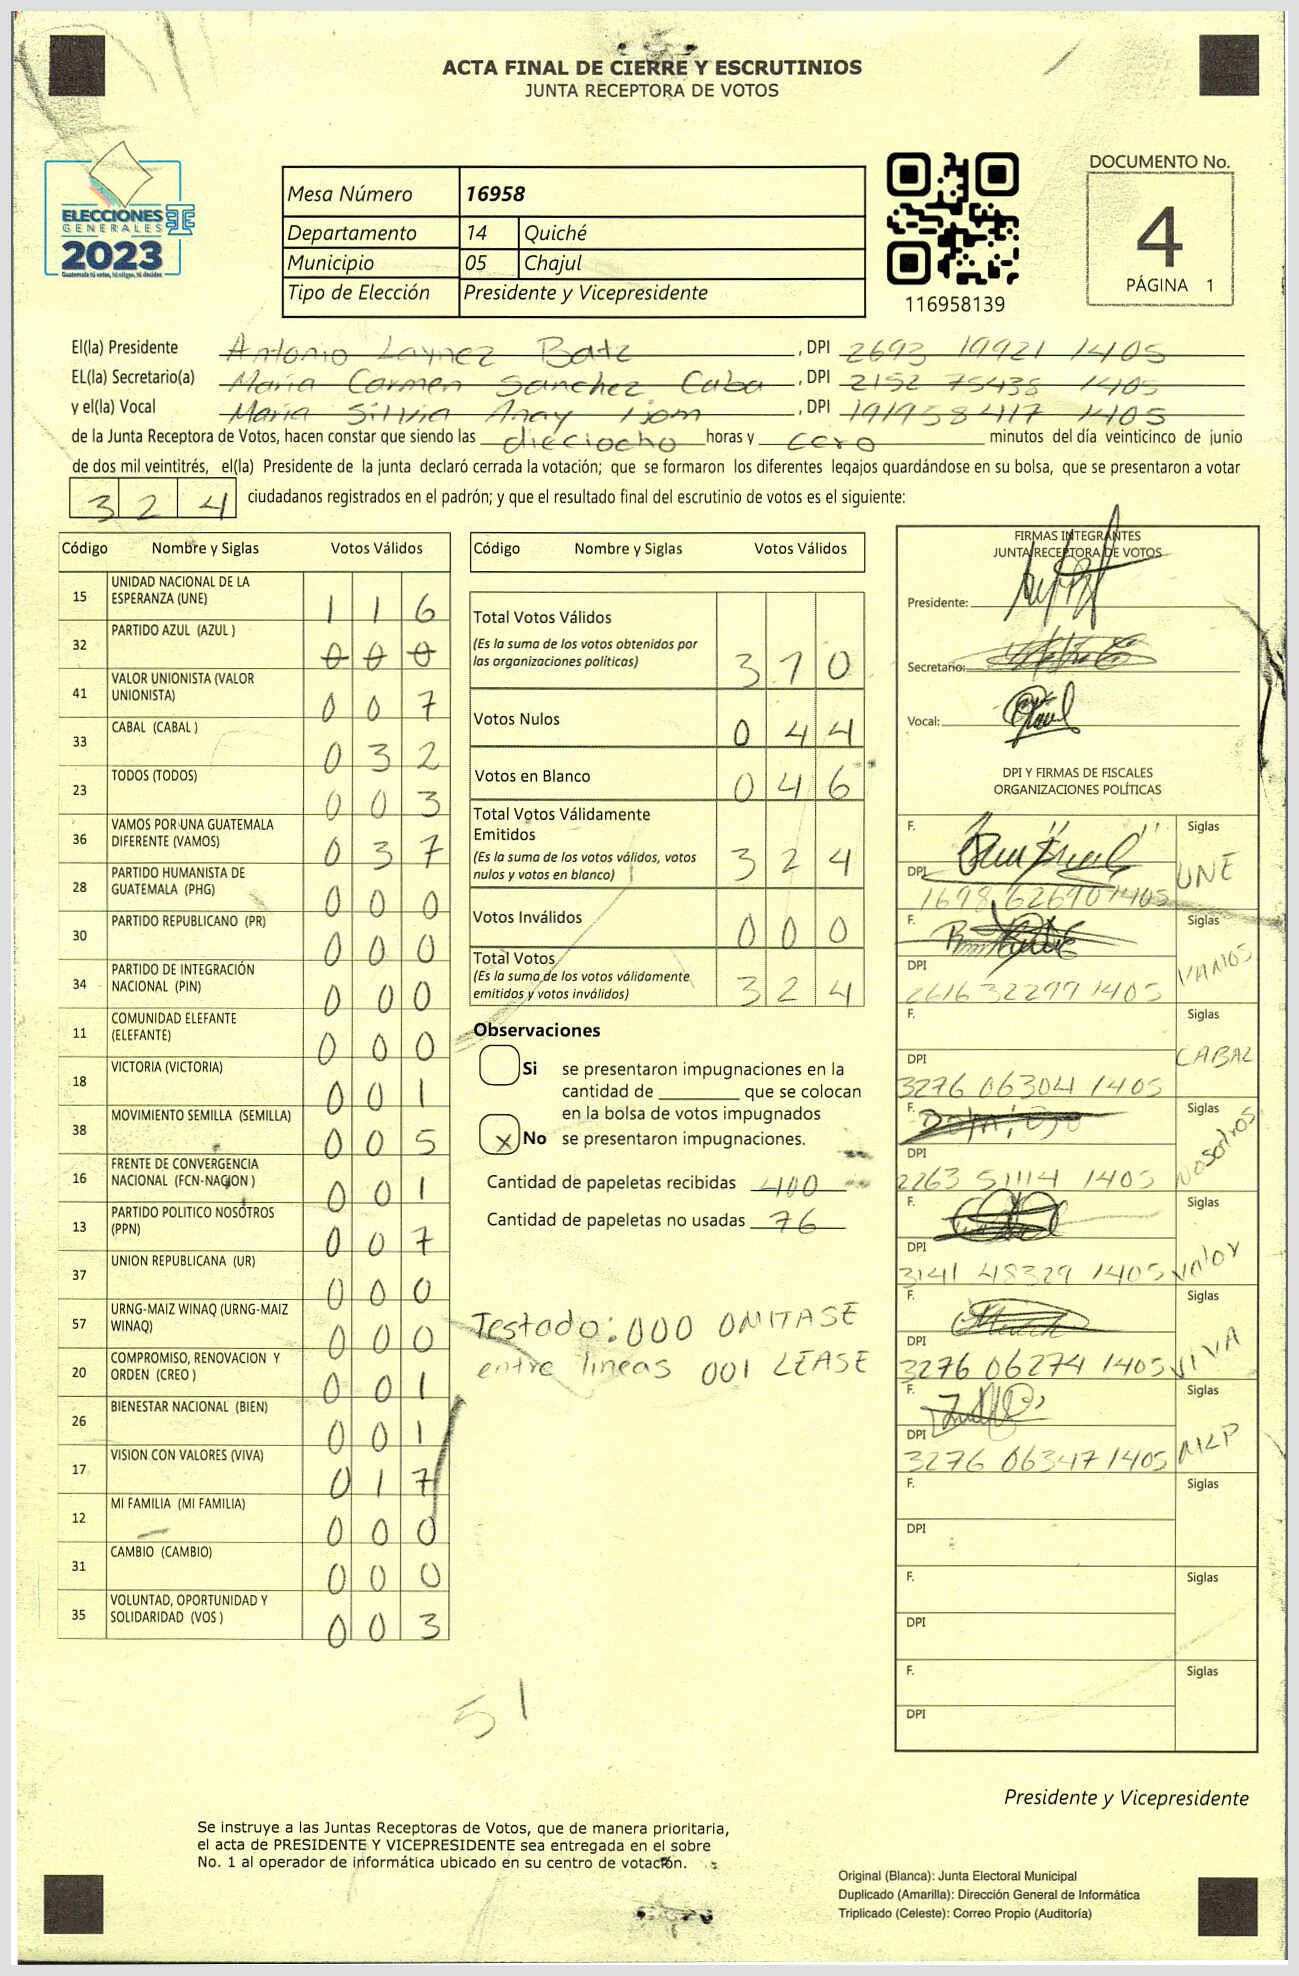 ACTA FINAL DE CIERRE Y ESCRUTINIOS
JUNTA RECEPTORA DE VOTOS
ELECCIONES
GENERALES
2023
Guatemala tú votas, tú eliges, tú decides
Mesa Número 16958
Departamento 14 Quiché
Municipio 05 Chajul
Tipo de Elección Presidente y Vicepresidente
116958139
DOCUMENTO No.
4
PÁGINA 1
El(la) Presidente Antonio Laynez Batz, DPI 2693 19921 1405
EL(la) Secretario(a) Maria Carmen Sanchez Caba, DPI 2152 75438 1405
y el(la) Vocal Maria Silvia Anay Ijom, DPI 1919 58417 1405
de la Junta Receptora de Votos, hacen constar que siendo las dieciocho horas y cero minutos del día veinticinco de junio
de dos mil veintitrés, el(la) Presidente de la junta declaró cerrada la votación; que se formaron los diferentes legajos quardándose en su bolsa, que se presentaron a votar
324 ciudadanos registrados en el padrón; y que el resultado final del escrutinio de votos es el siguiente:
Código Nombre y Siglas Votos Válidos
15 UNIDAD NACIONAL DE LA ESPERANZA (UNE) 116
32 PARTIDO AZUL (AZUL ) 000
41 VALOR UNIONISTA (VALOR UNIONISTA) 007
33 CABAL (CABAL ) 032
23 TODOS (TODOS) 003
36 VAMOS POR UNA GUATEMALA DIFERENTE (VAMOS) 037
28 PARTIDO HUMANISTA DE GUATEMALA (PHG) 000
30 PARTIDO REPUBLICANO (PR) 000
34 PARTIDO DE INTEGRACIÓN NACIONAL (PIN) 000
11 COMUNIDAD ELEFANTE (ELEFANTE) 000
18 VICTORIA (VICTORIA) 001
38 MOVIMIENTO SEMILLA (SEMILLA) 005
16 FRENTE DE CONVERGENCIA NACIONAL (FCN-NACION ) 001
13 PARTIDO POLITICO NOSOTROS (PPN) 007
37 UNION REPUBLICANA (UR) 000
57 URNG-MAIZ WINAQ (URNG-MAIZ WINAQ) 000
20 COMPROMISO, RENOVACION Y ORDEN (CREO ) 001
26 BIENESTAR NACIONAL (BIEN) 001
17 VISION CON VALORES (VIVA) 017
12 MI FAMILIA (MI FAMILIA) 000
31 CAMBIO (CAMBIO) 000
35 VOLUNTAD, OPORTUNIDAD Y SOLIDARIDAD (VOS ) 003
51
Código Nombre y Siglas Votos Válidos
Total Votos Válidos 310
(Es la suma de los votos obtenidos por
las organizaciones políticas)
Votos Nulos 044
Votos en Blanco 046
Total Votos Válidamente
Emitidos 324
(Es la suma de los votos válidos, votos
nulos y votos en blanco)
Votos Inválidos 000
Total Votos 324
(Es la suma de los votos válidamente
emitidos y votos inválidos)
Observaciones
Si se presentaron impugnaciones en la
cantidad de ________ que se colocan
en la bolsa de votos impugnados
x No se presentaron impugnaciones.
Cantidad de papeletas recibidas 400
Cantidad de papeletas no usadas 76
Testado: 000 OMITASE
entre lineas 001 LEASE
FIRMAS INTEGRANTES
JUNTA RECEPTORA DE VOTOS
Presidente:
Secretario:
Vocal:
DPI Y FIRMAS DE FISCALES
ORGANIZACIONES POLÍTICAS
F. Siglas UNE
DPI 1698 62690 1405
F. Siglas VAMOS
DPI 2616 32299 1405
F. Siglas CABAL
DPI 3276 06304 1405
F. Siglas Nosotros
DPI 2263 51114 1405
F. Siglas Valor
DPI 3141 48329 1405
F. Siglas VIVA
DPI 3276 06274 1405
F. Siglas MLP
DPI 3276 06347 1405
F. Siglas
DPI
F. Siglas
DPI
F. Siglas
DPI
Presidente y Vicepresidente
Se instruye a las Juntas Receptoras de Votos, que de manera prioritaria,
el acta de PRESIDENTE Y VICEPRESIDENTE sea entregada en el sobre
No. 1 al operador de informática ubicado en su centro de votación.
Original (Blanca): Junta Electoral Municipal
Duplicado (Amarilla): Dirección General de Informática
Triplicado (Celeste): Correo Propio (Auditoría)